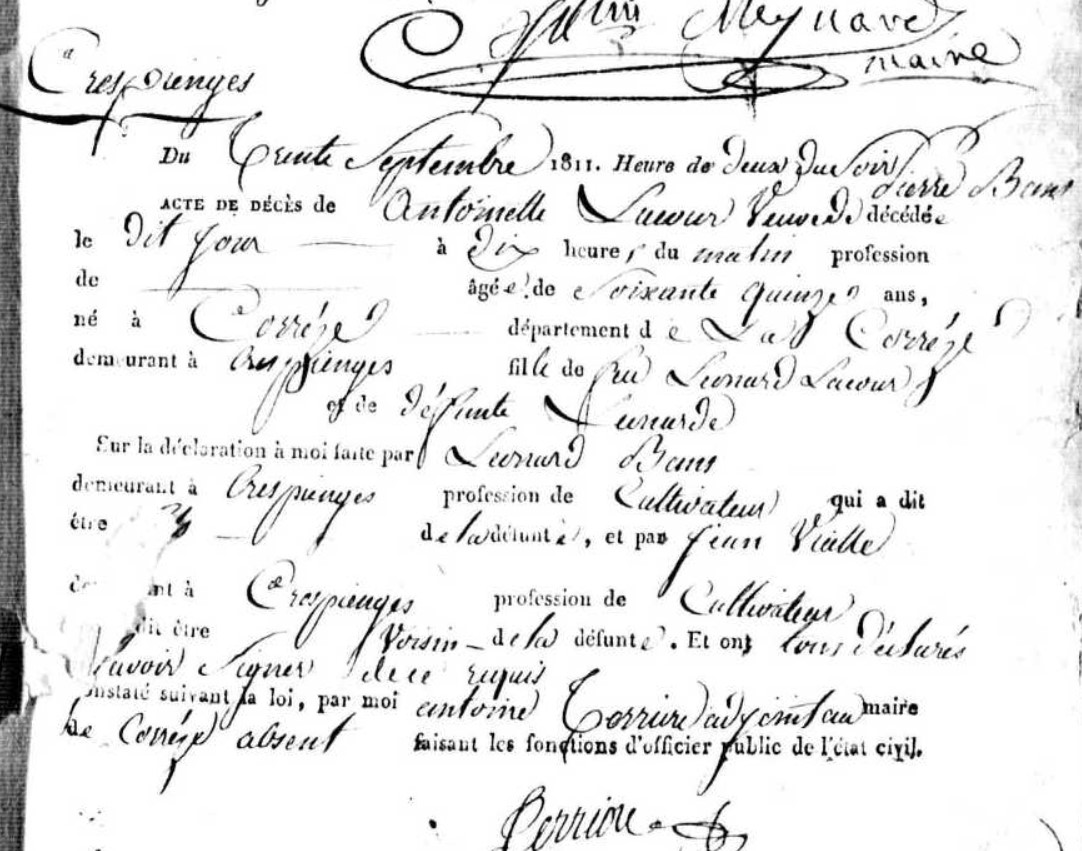 Meynard
maire
Crespienges
Du trente Septembre 1811. Heure de deux du Soir
Pierre Bans
ACTE DE DÉCÈS de Antoinette Lacour Veuve de décédée
le dit jour à dix heures du matin profession
de âgée de Soixante quinze ans,
né à Corréze département de La Corréze
demeurant à Crespienges fille de feu Leonard Lacour
et de défunte Leonarde
Sur la déclaration à moi faite par Leonard Bans
demeurant à Crespienges profession de Cultivateur qui a dit
être de la défunte, et par Jean Vialle
à Crespienges profession de Cultivateur
dit être Voisin de la défunte. Et ont tous déclarés
Signer de ce requis
constaté suivant la loi, par moi antoine Terriere adjoint au maire
de Corréze absent faisant les fonctions d'officier public de l'état civil.